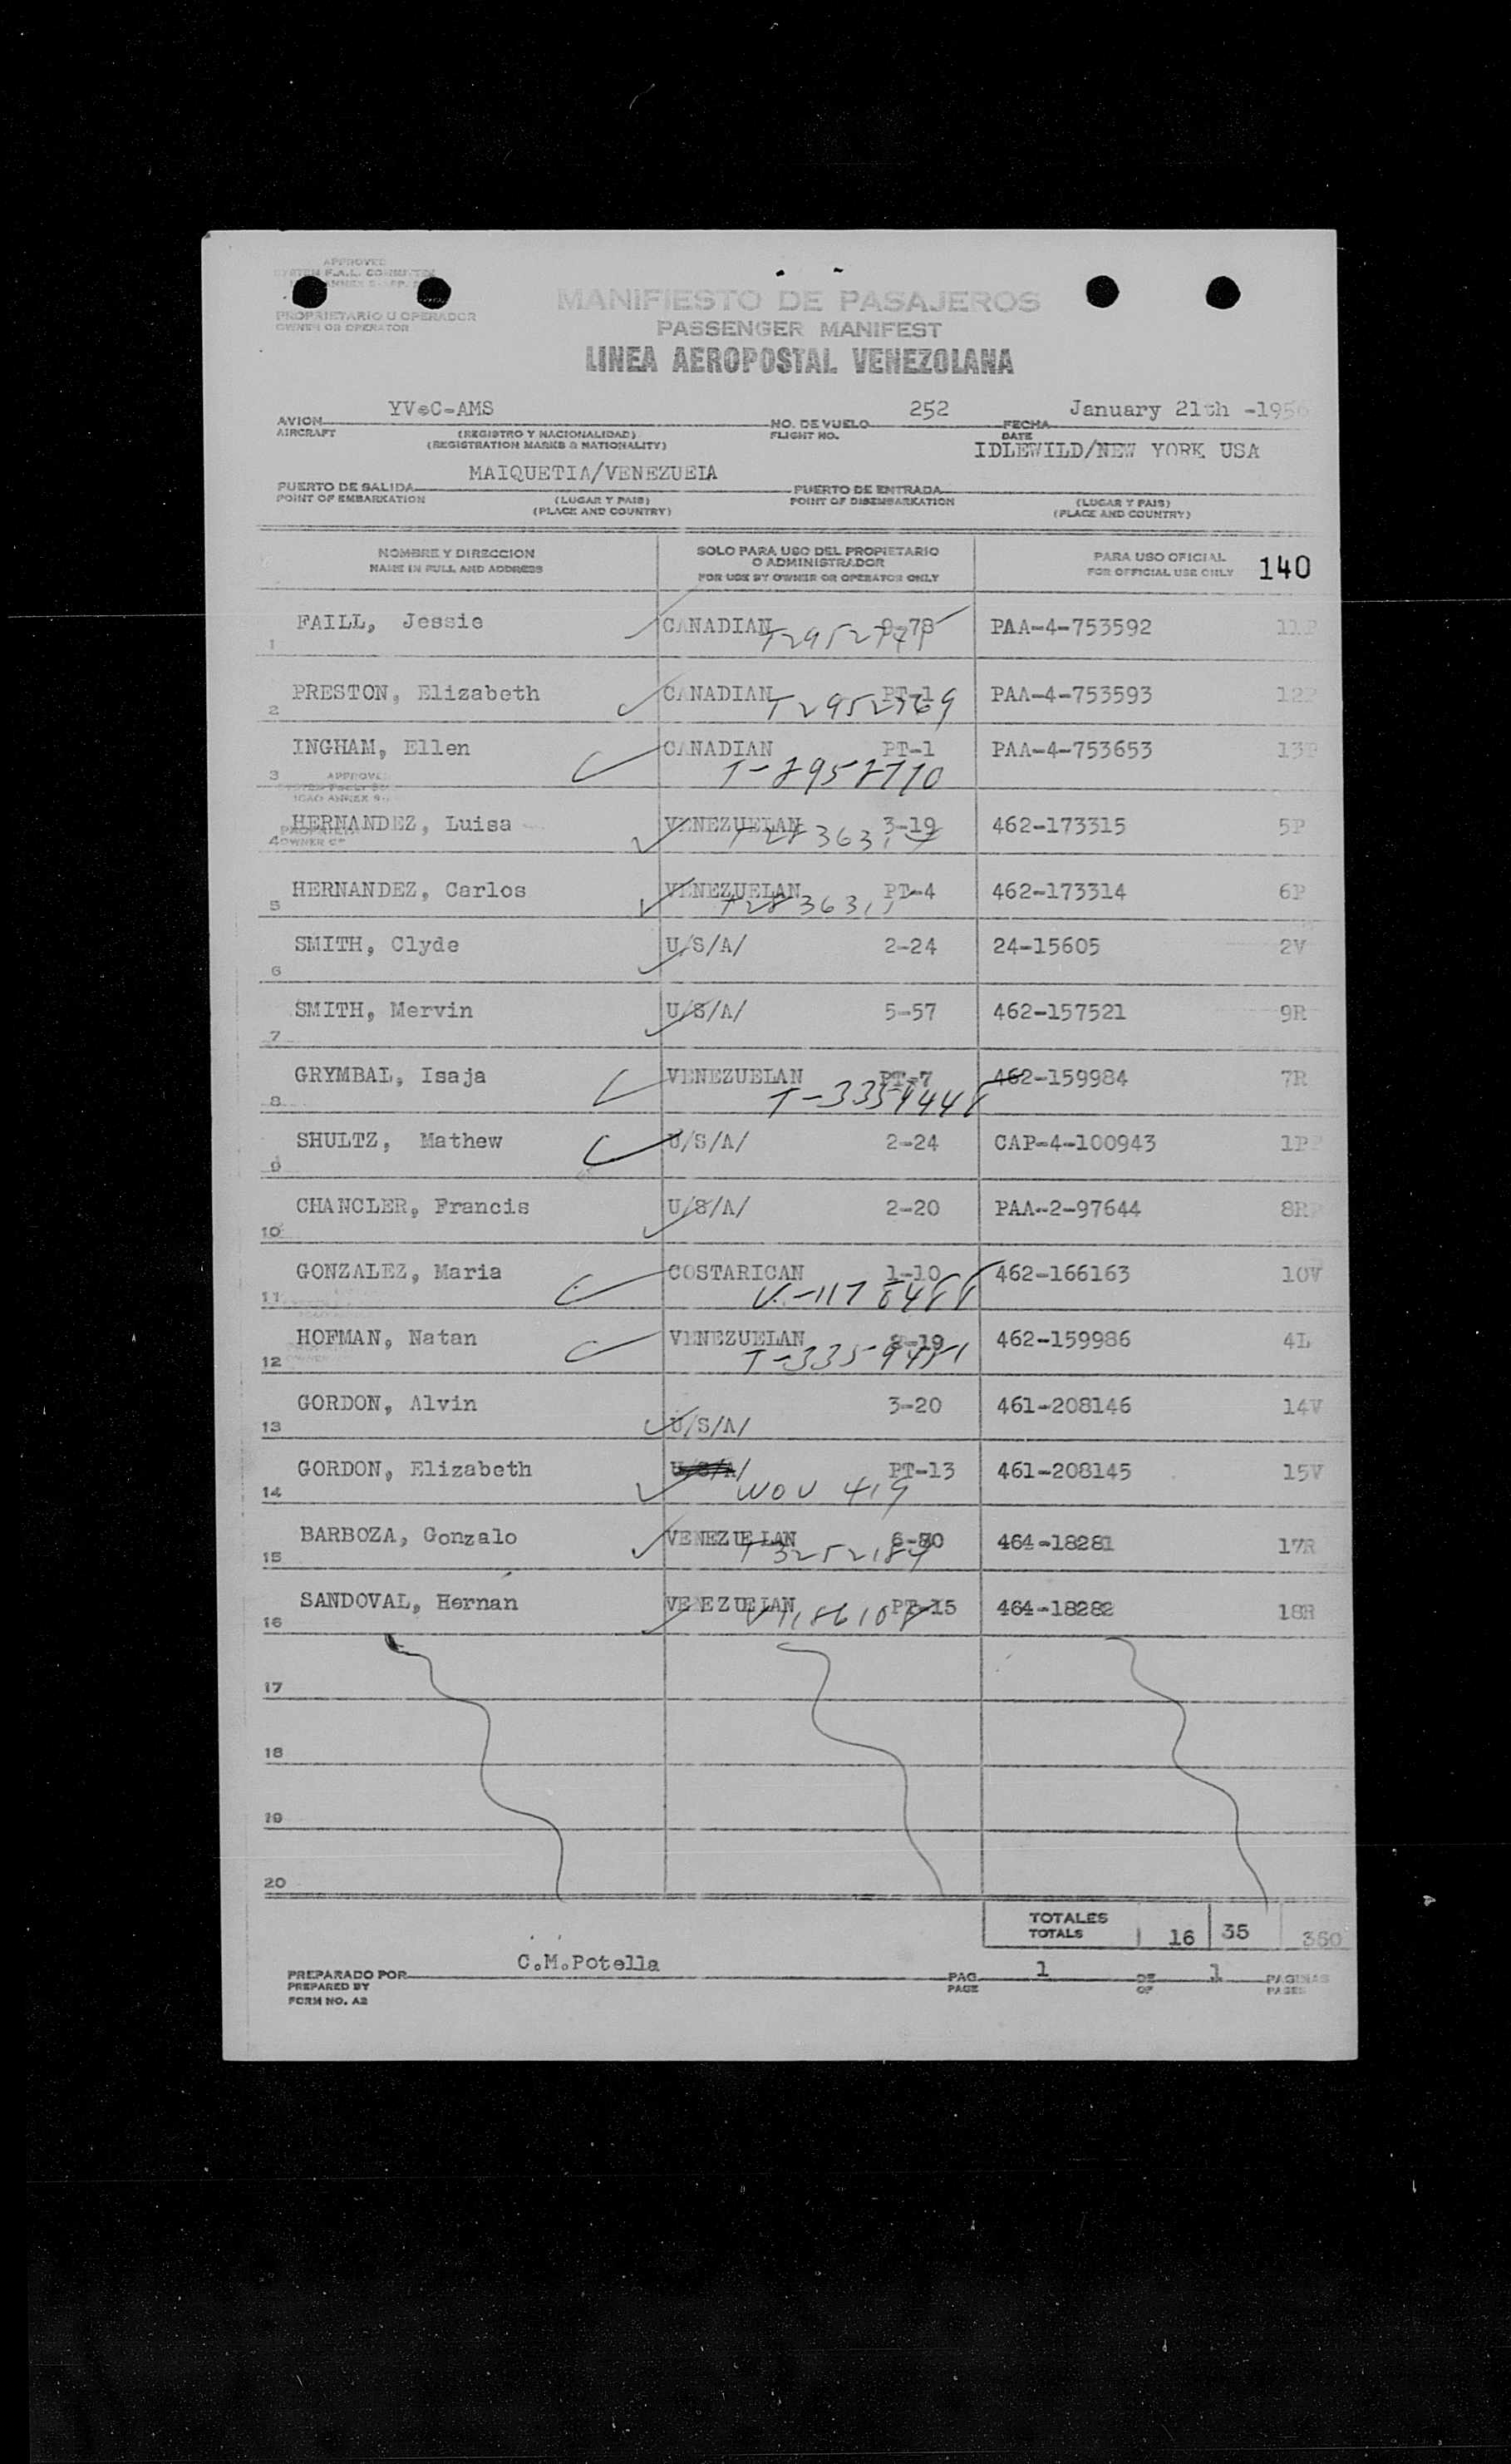 APPROVED
SYSTEM F.A.L. COMMITTEE
PROPRIETARIO U OPERADOR
OWNER OR OPERATOR
MANIFIESTO DE PASAJEROS
PASSENGER MANIFEST
LINEA AEROPOSTAL VENEZOLANA
YV-C-AMS 252 January 21th -1956
AVION NO. DE VUELO FECHA
AIRCRAFT (REGISTRO Y NACIONALIDAD) FLIGHT NO. DATE
(REGISTRATION MARKS & NATIONALITY)
IDLEWILD/NEW YORK USA
MAIQUETIA/VENEZUELA
PUERTO DE SALIDA PUERTO DE ENTRADA
POINT OF EMBARKATION (LUGAR Y PAIS) POINT OF DISEMBARKATION (LUGAR Y PAIS)
(PLACE AND COUNTRY) (PLACE AND COUNTRY)
NOMBRE Y DIRECCION SOLO PARA USO DEL PROPIETARIO PARA USO OFICIAL
NAME IN FULL AND ADDRESS O ADMINISTRADOR FOR OFFICIAL USE ONLY 140
FOR USE BY OWNER OR OPERATOR ONLY
1 FAILL, Jessie CANADIAN PAA-4-753592 11P
2 PRESTON, Elizabeth CANADIAN PT-1 PAA-4-753593 12P
T2952769
3 INGHAM, Ellen CANADIAN PT-1 PAA-4-753653 13P
T-2952770
APPROVED
4 HERNANDEZ, Luisa VENEZUELAN 3-19 462-173315 5P
5 HERNANDEZ, Carlos VENEZUELAN PT-4 462-173314 6P
6 SMITH, Clyde U/S/A/ 2-24 24-15605 2V
7 SMITH, Mervin U/S/A/ 5-57 462-157521 9R
8 GRYMBAL, Isaja VENEZUELAN PT-7 462-159984 7R
9 SHULTZ, Mathew U/S/A/ 2-24 CAP-4-100943 1P
10 CHANCLER, Francis U/S/A/ 2-20 PAA-2-97644 8R
11 GONZALEZ, Maria COSTARICAN 1-10 462-166163 10V
12 HOFMAN, Natan VENEZUELAN 8-19 462-159986 4L
13 GORDON, Alvin U/S/A/ 3-20 461-208146 14V
14 GORDON, Elizabeth U/S/A/ PT-13 461-208145 15V
WOU 419
15 BARBOZA, Gonzalo VENEZUELAN 464-18281 17R
16 SANDOVAL, Hernan VENEZUELAN PT-15 464-18282 18R
17
18
19
20
TOTALES
TOTALS 16 35 360
C.M.Potella
PREPARADO POR PAG. 1 DE 1 PAGINAS
PREPARED BY PAGE OF PAGES
FORM NO. A2